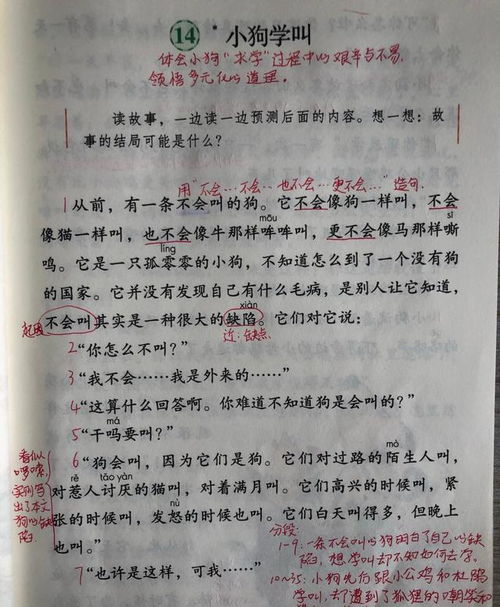 14* 小狗学叫
体会小狗“求学”过程中的艰辛与不易,
领悟多元化的道理。
读故事，一边读一边预测后面的内容。想一想：故
事的结局可能是什么？
用“不会…不会…也不会…更不会…”造句.
1从前，有一条不会叫的狗。它不会像狗一样叫，不会
mōu sī
像猫一样叫，也不会像牛那样哞哞叫，更不会像马那样嘶
líng
鸣。它是一只孤零零的小狗，不知道怎么到了一个没有狗
的国家。它并没有发现自己有什么毛病，是别人让它知道，
xiàn
起因 不会叫其实是一种很大的缺陷。它们对它说：
近：缺点
2“你怎么不叫？”
3“我不会……我是外来的……”
4“这算什么回答啊。你难道不知道狗是会叫的？”
má
5“干吗要叫？”
mò
6“狗会叫，因为它们是狗。它们对过路的陌生人叫，
rě tǎo yàn
对惹人讨厌的猫叫，对着满月叫。它们高兴的时候叫，紧
nù
张的时候叫，发怒的时候也叫。它们白天叫得多，但晚上
也叫。”
看似
啰嗦,
实则写
出了本文
狗的缺
陷
7“也许是这样，可我……”
分段:
1-9:一条不会叫的狗明白了自己的缺
陷，想学叫却不知如何去学。
10~25:小狗先后跟小公鸡和杜鹃
学叫,却遭到了狐狸的嘲笑和